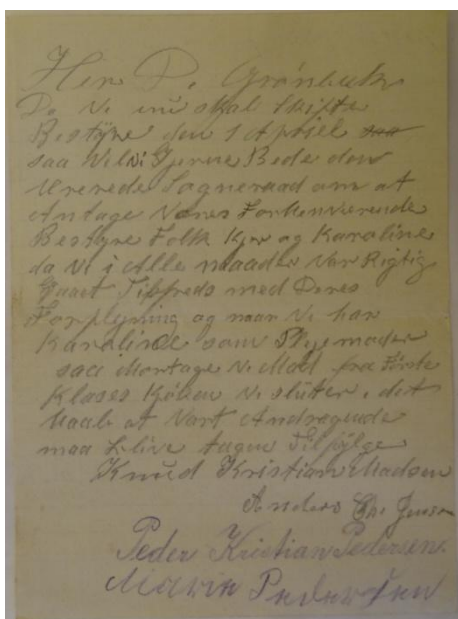 Herr P. Grönbæk
Da Vi nu skal Skifte
Bestyre den 1 Aptiel saa
saa Vil Vi Gjerne Bede den
Ærerede Sogneraad om at
Antage Vores Forhenværende
Bestyre Folk Kjer og Karoline
da Vi i Alle maader Var Rigtig
Gaaet Tilfreds med Deres
Forplejning og naar Vi har
Karoline som Plejemoder
saa Montage Vi Mad fra Förste
Klases Köken Vi slutter, det
Haab at Vort Andragende
maa blive tagen Tilfölge
Knud Kristian Madsen
Anders Chr Jensen
Peder Kristian Pedersen
Maria Pedersen